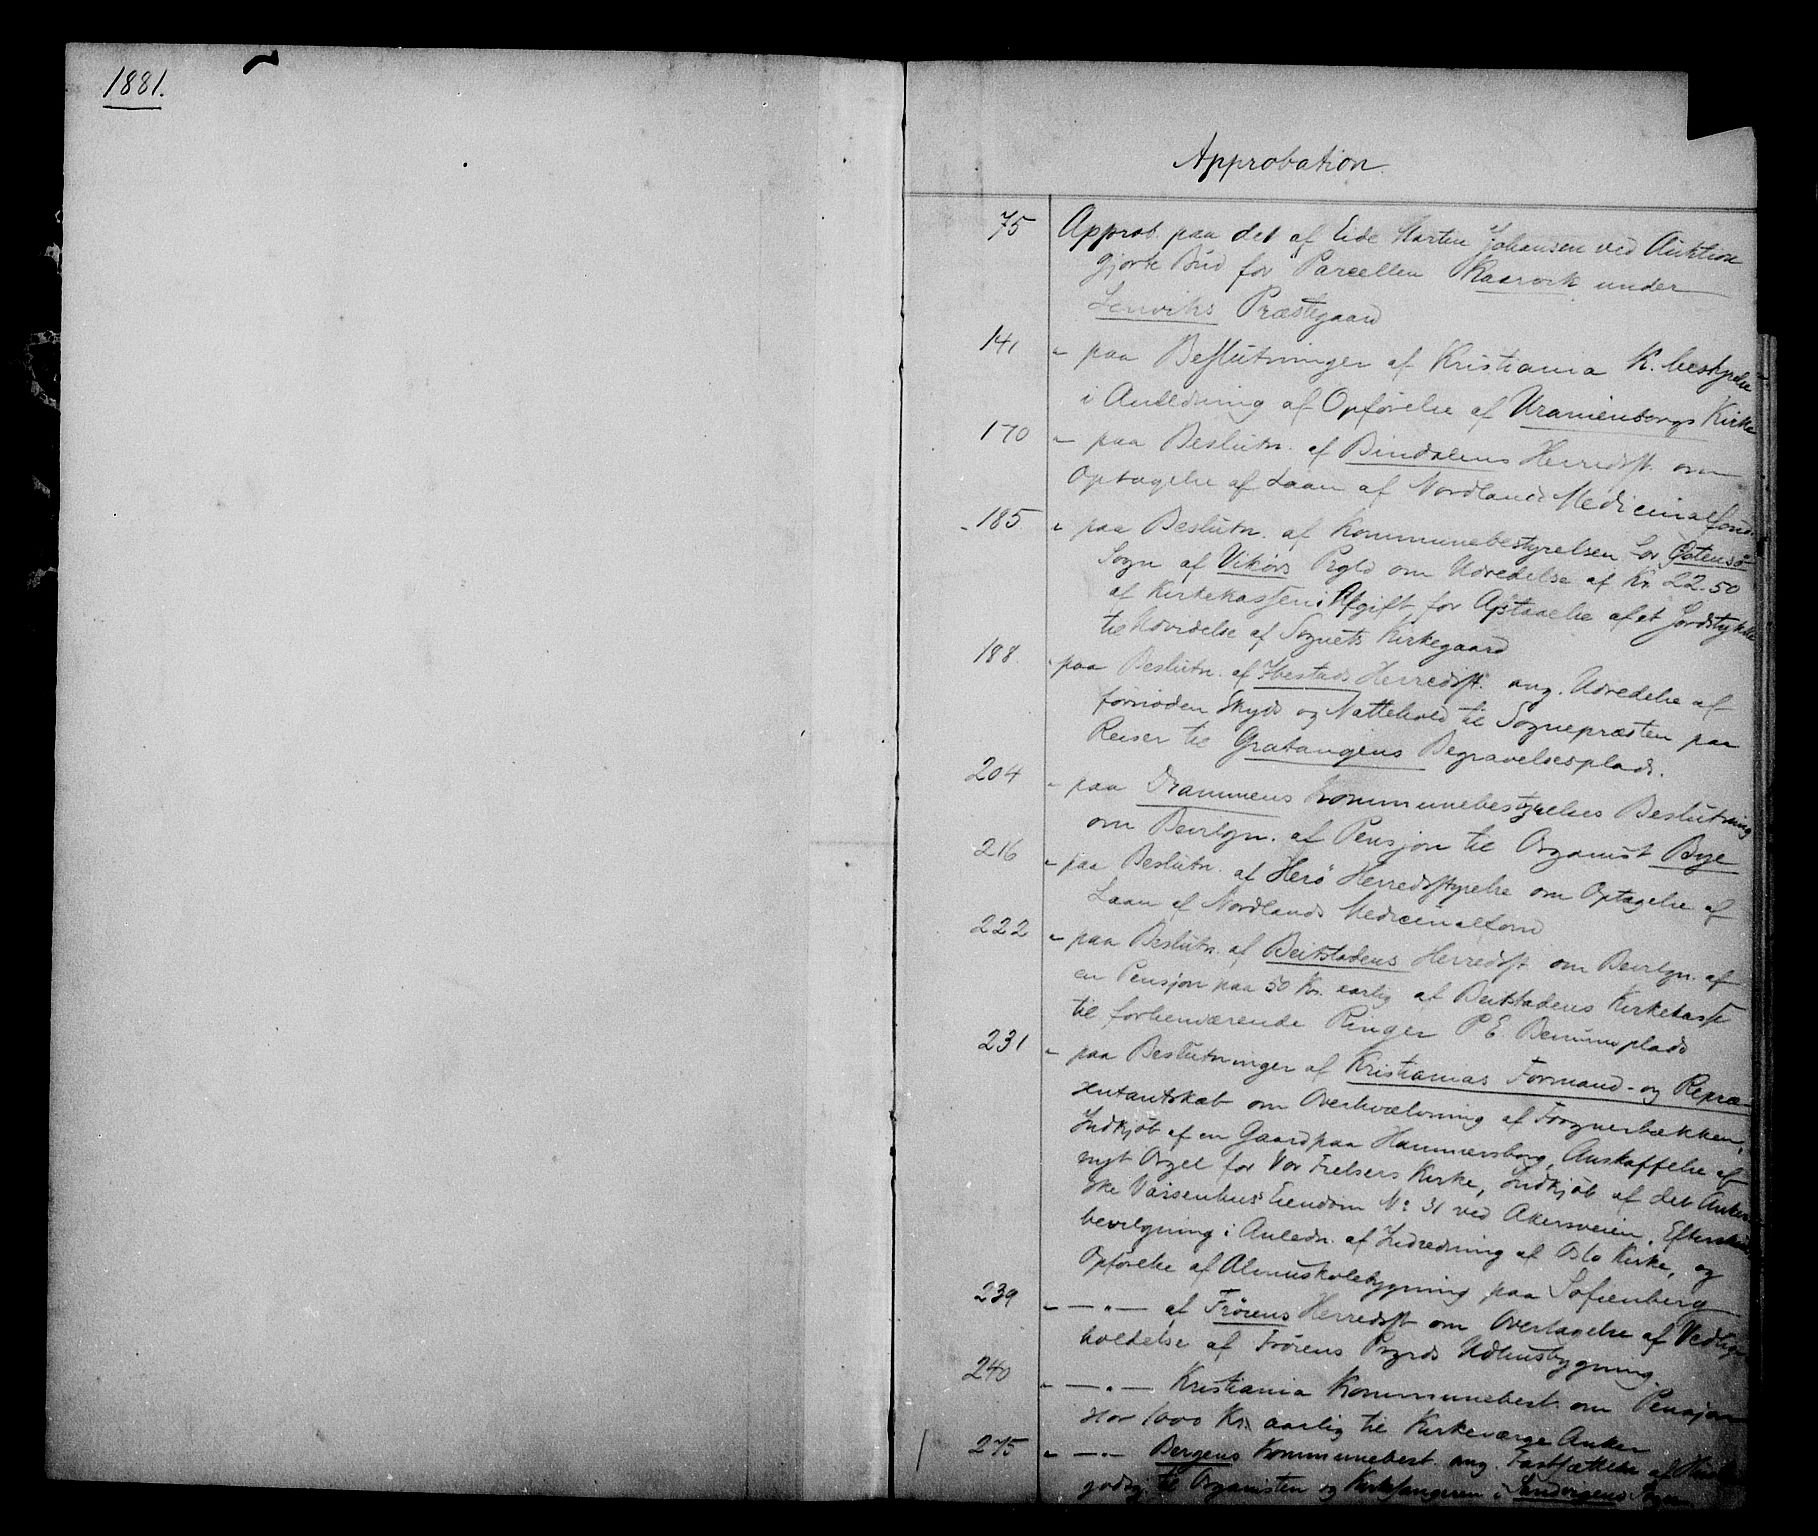 1881.
Approbation.
75 Approb. paa det af Eide Marten Johansen ved Auktion
gjorte Bud for Parcellen Kaarvik under
Lenviks Præstegaard
141 " paa Beslutninger af Kristiania K. bestyrelse
i Anledning af Opførelse af Uranienborgs Kirke
170 " paa Beslutn. af Bindalens Herredsst. om
Optagelse af Laan af Nordlands Medicinalfond.
185 " paa Beslutn. af Kommunebestyrelsen for Østensø
Sogn af Vikørs Prgld om Udredelse af Kr. 22.50
af Kirkekassen i Afgift for Afstaaelse af et Jordstykke
til Udvidelse af Sognets Kirkegaard
188. " paa Beslutn. af Ibestads Herredsst. ang. Udredelse af
fornøden Skyds og Nattehold til Sognepræsten paa
Reiser til Gratangens Begravelsesplads.
204 " paa Drammens Kommunebestyrelses Beslutning
om Bevilgn. af Pensjon til Organist Bye
216 " paa Beslutn. af Herø Herredsstyrelse om Optagelse af
Laan af Nordlands Medicinalfond
222 " paa Beslutn. af Beitstadens Herredsst. om Bevilgn. af
en Pensjon paa 50 Kr. aarlig af Beitstadens Kirkekasse
til forhenværende Ringer P. E. plads
231 " paa Beslutninger af Kristianias Formand- og Repræ-
sentantskab om Overhvælvning af Frognerbækken,
Indkjøb af en Gaard paa Hammersborg, Anskaffelse af
nyt Orgel for Vor Frelsers Kirke, Indkjøb af det Anker-
ske Vaisenhus' Eiendom No 31 ved Akersveien,
bevilgning i Anledn. af Indredning af Oslo Kirke, og
Opførelse af Almuskolebygning paa Sofienberg
239 " — " — af Frøiens Herredsst om Overtagelse af Vedlige-
holdelse af Frøiens Prgrds Udhusbygning.
240 " — " — Kristiania Kommunebest. om Pensjon
stor 1000 Kr. aarlig til Kirkeværge Anker
275 " — " — Bergens Kommunebest. ang. Fastsættelse af
godtg. til Organisten og Kirkesangeren i Sandvigens Sogn